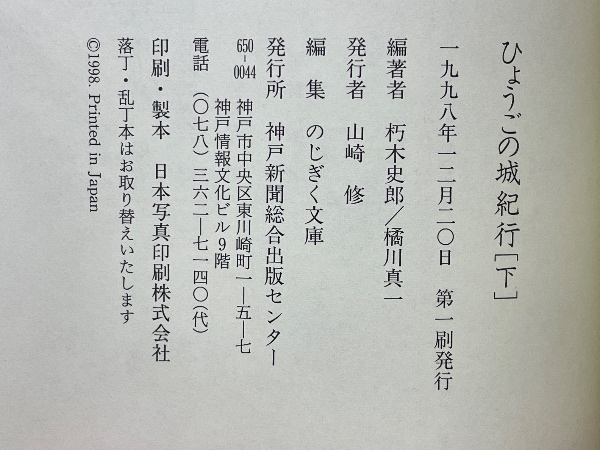 ひょうごの城紀行［下］
一九九八年一二月二〇日　第一刷発行
編著者　朽木史郎／橘川真一
発行者　山崎　修
編　集　のじぎく文庫
発行所　神戸新聞総合出版センター
650-0044　神戸市中央区東川崎町一―五―七
神戸情報文化ビル9階
電話　（〇七八）三六二―七一四〇（代）
印刷・製本　日本写真印刷株式会社
落丁・乱丁本はお取り替えいたします
©1998. Printed in Japan